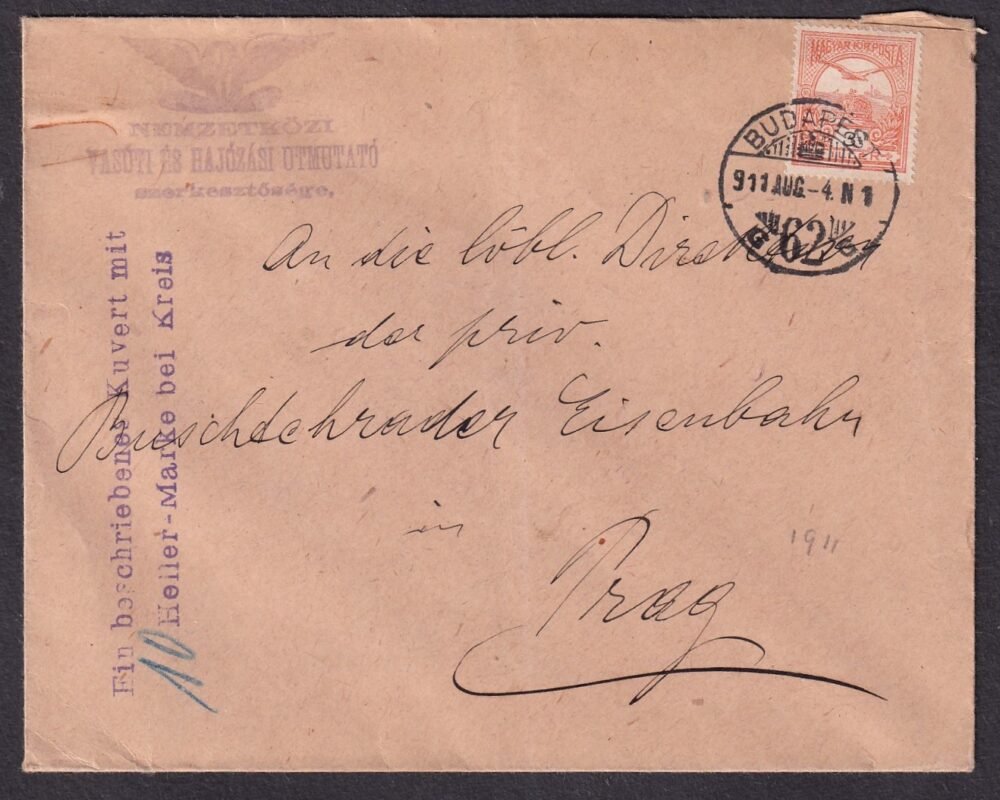 NEMZETKÖZI
VASÚTI ÉS HAJÓZÁSI ÚTMUTATÓ
szerkesztősége,
MAGYAR KIR. POSTA
BUDAPEST
911 AUG.-4. N 1
62
An die löbl. Direktion
der priv.
Buschtehrader Eisenbahn
in
Prag
1911
Ein beschriebenes Kuvert mit
10 Heller-Marke bei Kreis